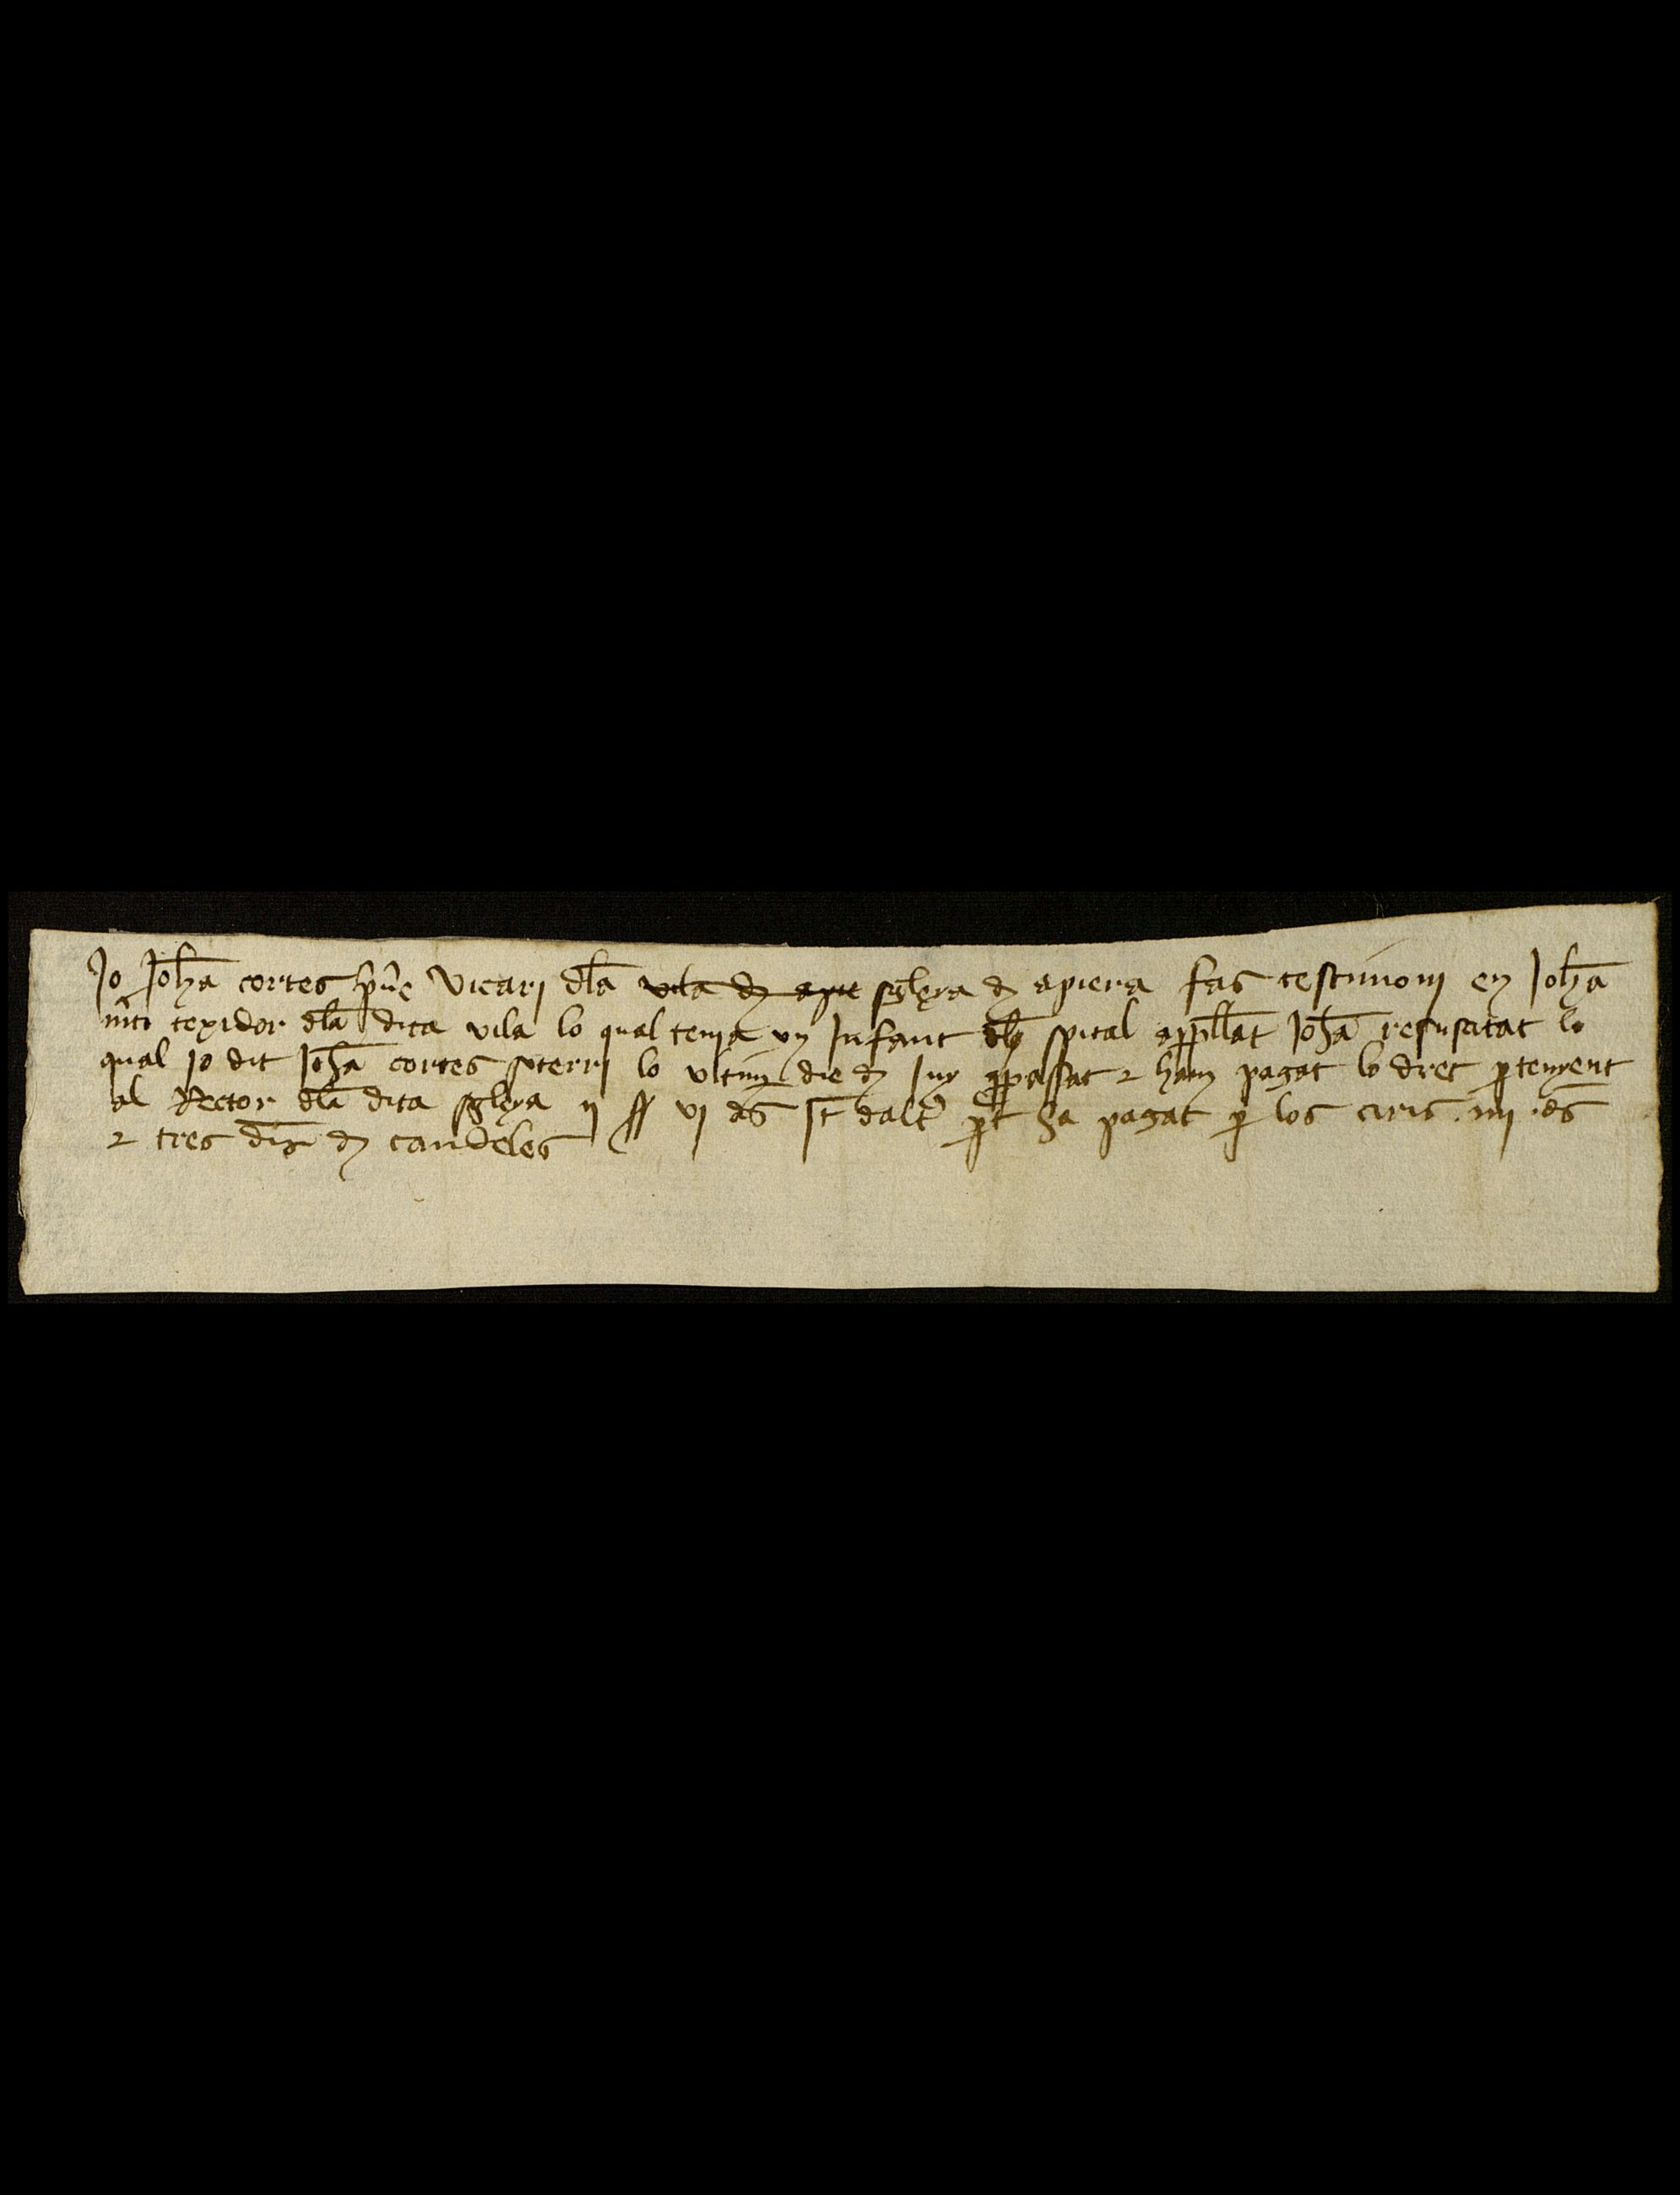 Jo Joha cortes pre vicari dla vila d apie sgleya d apiera fas testimoni en Joha
texidor dla dita vila lo qual tenia vn Infant dl spital appllat Joha resusitat lo
qual jo dit Joha cortes soterri lo vltim die d Juy ppassat e ham pagat lo dret ptenyent
al Rector dla dita sgleya ij ss vj ds It dalt pt ha pagat p los ciris .iiij. ds
e tres dis d candeles